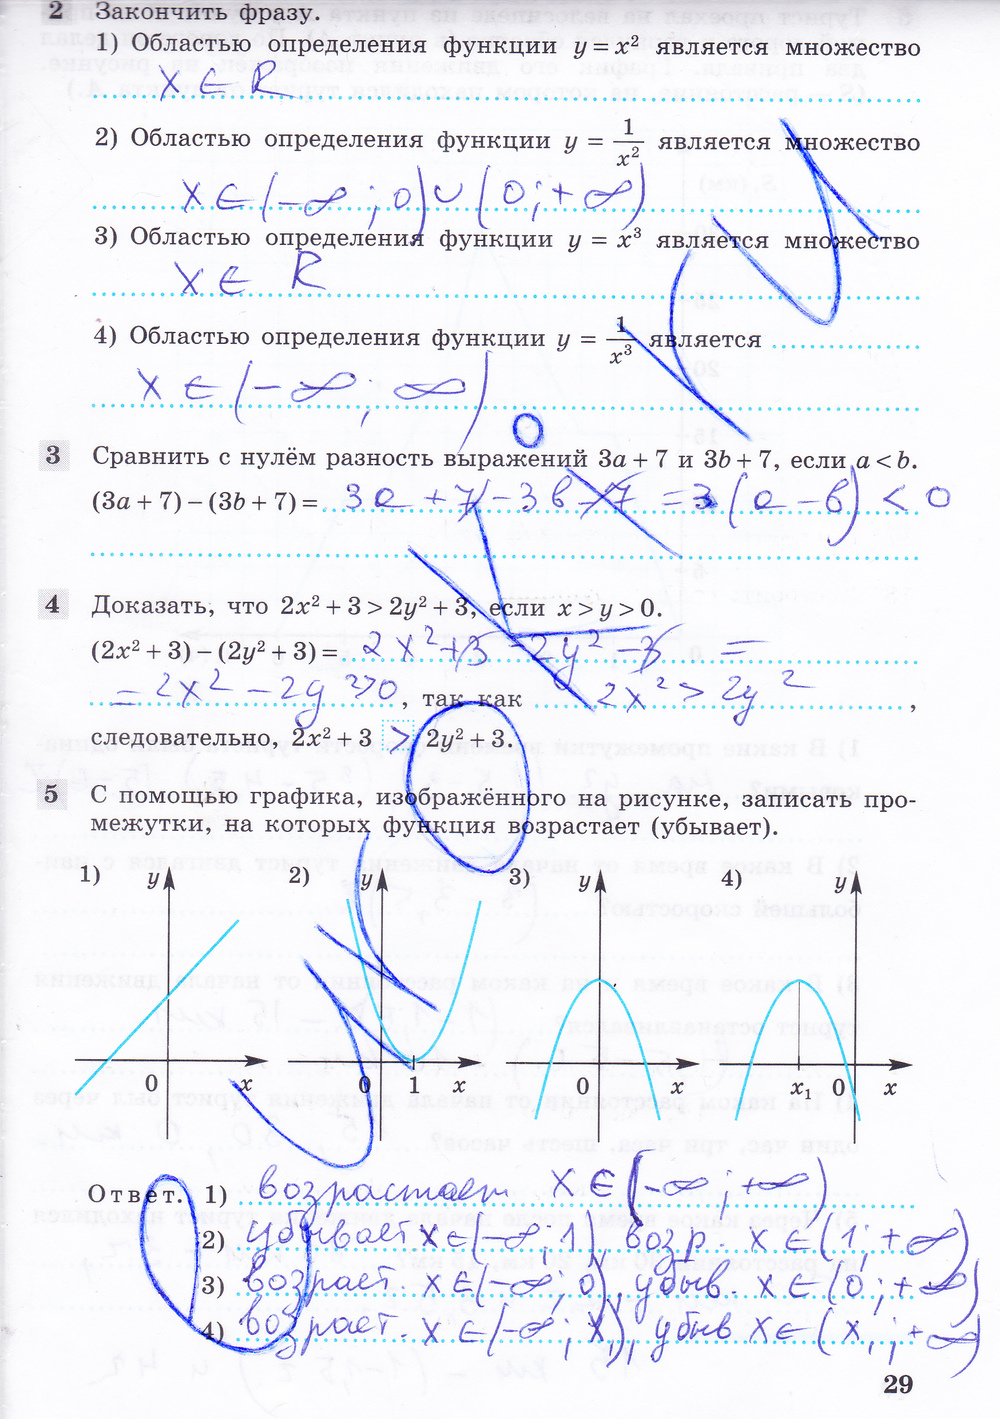 2 Закончить фразу.
1) Областью определения функции y = x² является множество
x ∈ R
2) Областью определения функции y = 1/x² является множество
x ∈ (-∞; 0) ∪ (0; +∞)
3) Областью определения функции y = x³ является множество
x ∈ R
4) Областью определения функции y = 1/x³ является
x ∈ (-∞; ∞)
3 Сравнить с нулём разность выражений 3a + 7 и 3b + 7, если a < b.
(3a + 7) – (3b + 7) = 3a + 7 - 3b - 7 = 3(a - b) < 0
4 Доказать, что 2x² + 3 > 2y² + 3, если x > y > 0.
(2x² + 3) – (2y² + 3) = 2x² + 3 - 2y² - 3 =
= 2x² - 2y² > 0, так как 2x² > 2y²,
следовательно, 2x² + 3 > 2y² + 3.
5 С помощью графика, изображённого на рисунке, записать про-
межутки, на которых функция возрастает (убывает).
1) y 2) y 3) y 4) y
0 x 0 1 x 0 x x₁ 0 x
Ответ. 1) возрастает x ∈ (-∞; +∞)
2) убывает x ∈ (-∞; 1), возр. x ∈ (1, +∞)
3) возраст. x ∈ (-∞; 0), убыв. x ∈ (0; +∞)
4) возраст. x ∈ (-∞; x₁), убыв x ∈ (x₁; +∞)
29